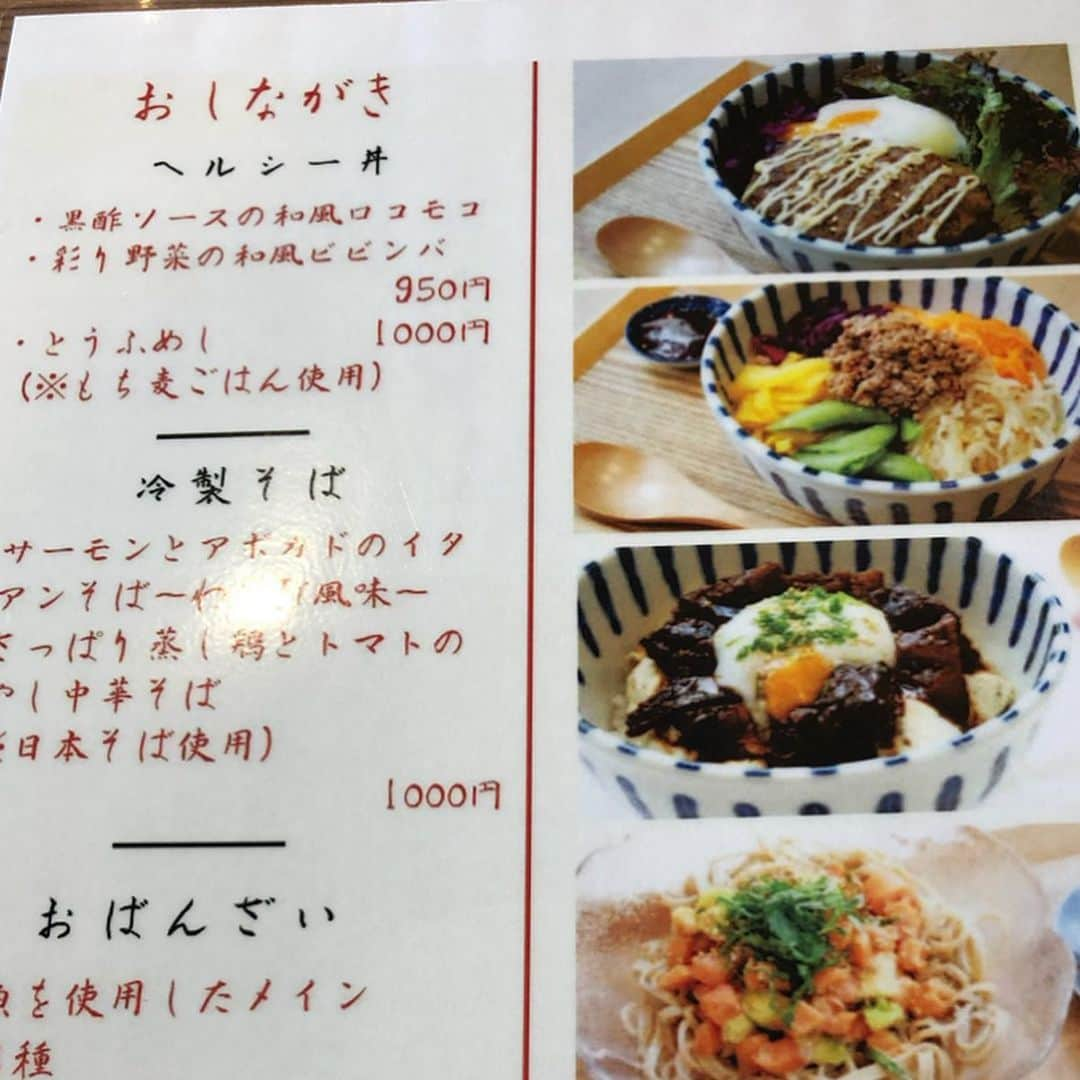 おしながき
ヘルシー丼
・黒酢ソースの和風ロコモコ
・彩り野菜の和風ビビンバ
950円
・とうふめし 1000円
(※もち麦ごはん使用)
冷製そば
サーモンとアボカドのイタ
アンそば～わ 風味～
さっぱり蒸し鶏とトマトの
やし中華そば
※日本そば使用)
1000円
おばんざい
を使用したメイン
種